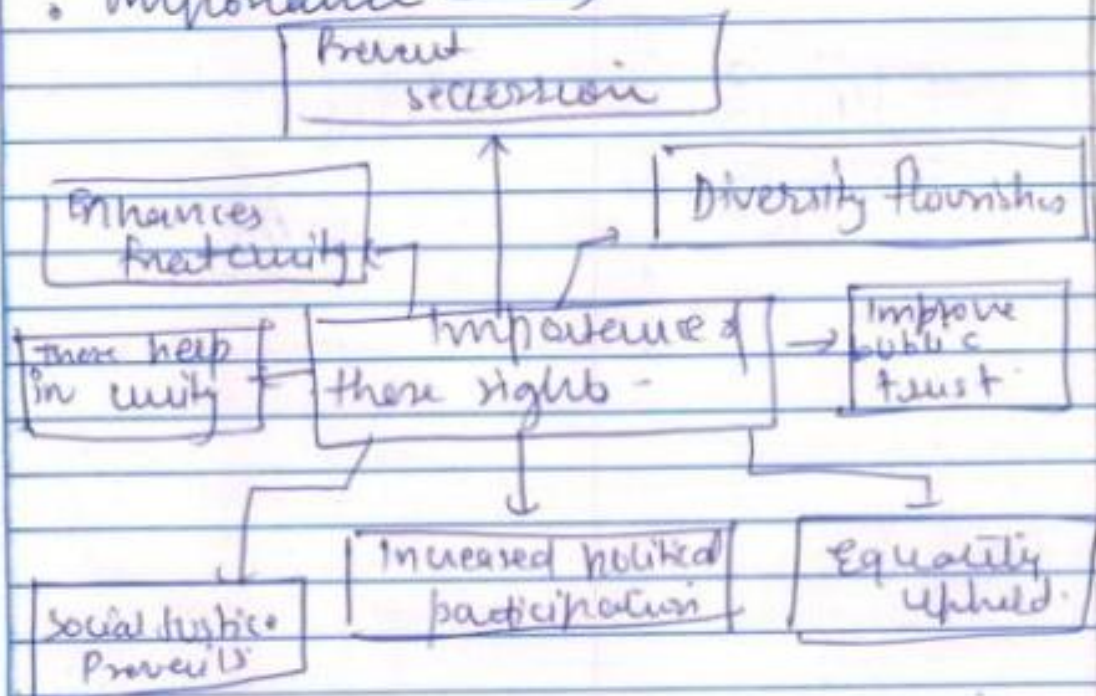 • Importance
Prevent
secession
Enhances
fraternity
Diversity flourishes
Importance of
these rights -
Improve
public
trust.
These help
in unity
Social Justice
Prevails
Increased political
participation
Equality
Upheld.